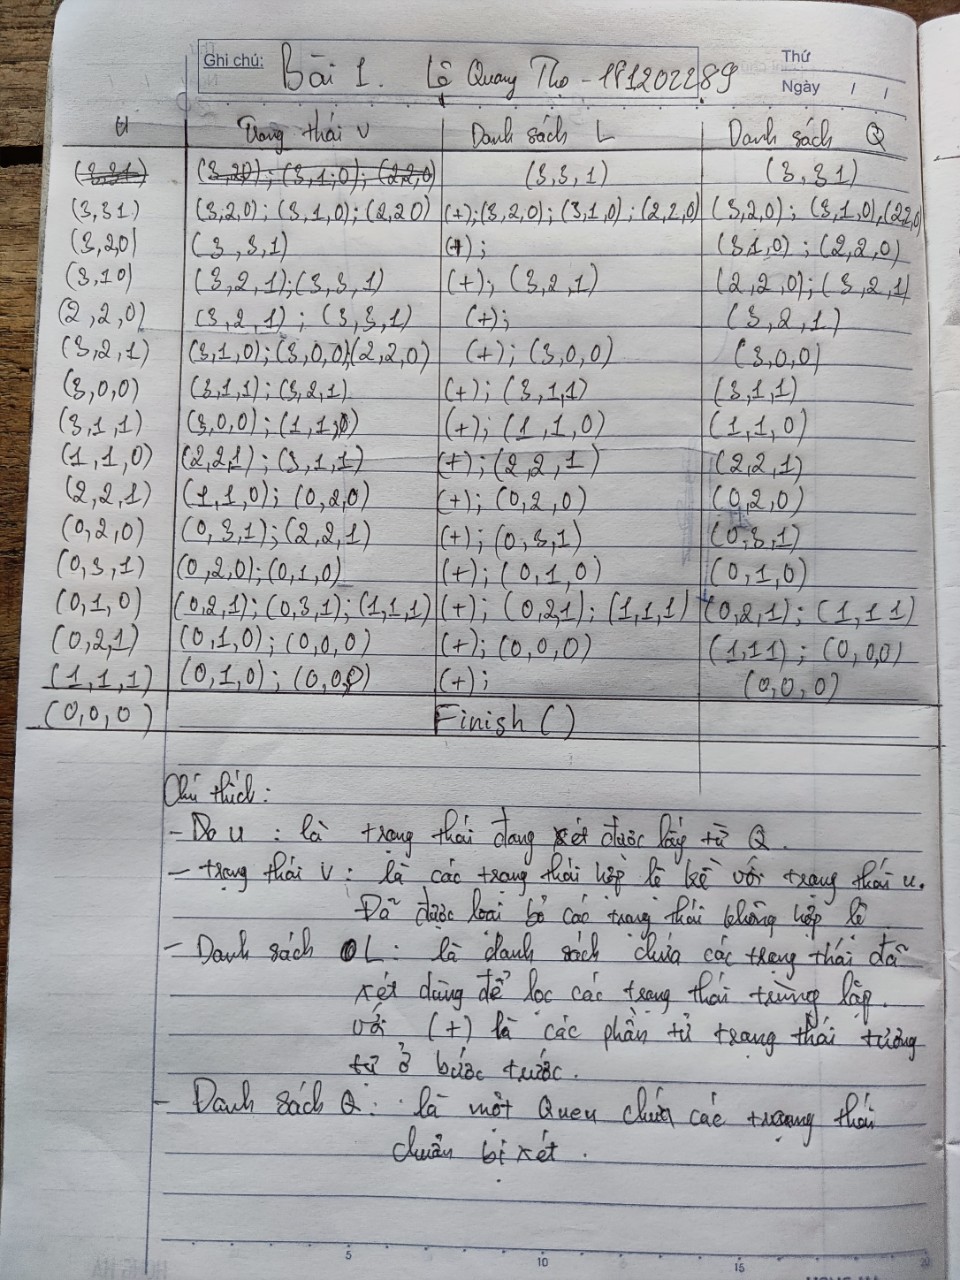 Ghi chú: Bài 1. Lê Quang Thọ - 181202289
Thứ
Ngày / /
U Trạng thái V Danh sách L Danh sách Q
(3,31) (3,20); (3,1,0); (2,2,0) (3,3,1) (3,31)
(3,31) (3,2,0); (3,1,0); (2,20) (+);(3,2,0); (3,1,0); (2,2,0) (3,2,0); (3,1,0),(22,0)
(3,2,0) (3,3,1) (+); (3,1,0); (2,2,0)
(3,10) (3,2,1);(3,3,1) (+); (3,2,1) (2,2,0);(3,2,1)
(2,2,0) (3,2,1); (3,3,1) (+); (3,2,1)
(3,2,1) (3,1,0);(3,0,0)(2,2,0) (+); (3,0,0) (3,0,0)
(3,0,0) (3,1,1); (3,2,1) (+); (3,1,1) (3,1,1)
(3,1,1) (3,0,0); (1,1,0) (+); (1,1,0) (1,1,0)
(1,1,0) (2,2,1); (3,1,1) (+); (2,2,1) (2,2,1)
(2,2,1) (1,1,0); (0,2,0) (+); (0,2,0) (0,2,0)
(0,2,0) (0,3,1);(2,2,1) (+); (0,3,1) (0,3,1)
(0,3,1) (0,2,0);(0,1,0) (+); (0,1,0) (0,1,0)
(0,1,0) (0,2,1); (0,3,1); (1,1,1) (+); (0,2,1); (1,1,1) (0,2,1); (1,1 1)
(0,2,1) (0,1,0); (0,0,0) (+); (0,0,0) (1,11); (0,0,0)
(1,1,1) (0,1,0); (0,0,0) (+); (0,0,0)
(0,0,0) Finish ()
Chú thích:
- Do u : là trạng thái đang xét được lấy từ Q.
- trạng thái V: là các trạng thái hợp lệ kề với trạng thái u.
Đã được loại bỏ các trạng thái không hợp lệ
- Danh sách L: là danh sách chứa các trạng thái đã
xét dùng để lọc các trạng thái trùng lặp.
với (+) là các phần tử trạng thái tương
tự ở bước trước.
- Danh sách Q: là một Queu chứa các trạng thái
chuẩn bị xét.
5 10 15 20